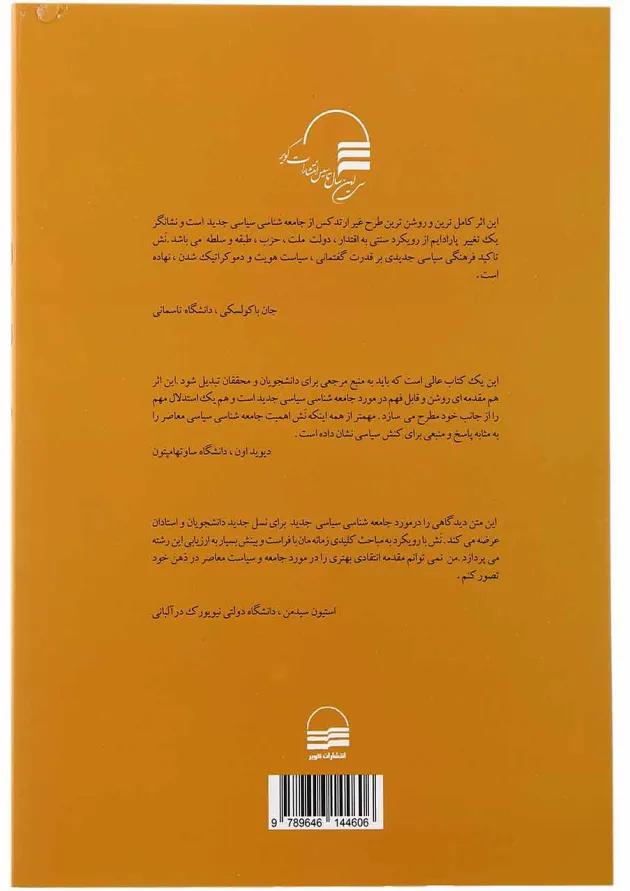 سی امین سال تاسیس انتشارات کویر
این اثر کامل ترین و روشن ترین طرح غیر ارتدکس از جامعه شناسی سیاسی جدید است و نشانگر
یک تغییر پارادایم از رویکرد سنتی به اقتدار ، دولت ملت ، حزب ، طبقه و سلطه می باشد .نَش
تاکید فرهنگی سیاسی جدیدی بر قدرت گفتمانی ، سیاست هویت و دموکراتیک شدن ، نهاده
است .
جان باکولسکی ، دانشگاه تاسمانی
این یک کتاب عالی است که باید به منبع مرجعی برای دانشجویان و محققان تبدیل شود .این اثر
هم مقدمه ای روشن و قابل فهم در مورد جامعه شناسی سیاسی جدید است و هم یک استدلال مهم
را از جانب خود مطرح می سازد . مهمتر از همه اینکه نَش اهمیت جامعه شناسی سیاسی معاصر را
به مثابه پاسخ و منبعی برای کنش سیاسی نشان داده است .
دیوید اون ، دانشگاه ساوتهامپتون
این متن دیدگاهی را درمورد جامعه شناسی سیاسی جدید برای نسل جدید دانشجویان و استادان
عرضه می کند . نَش با رویکرد به مباحث کلیدی زمانه مان با فراست و بینش بسیار به ارزیابی این رشته
می پردازد .من نمی توانم مقدمه انتقادی بهتری را در مورد جامعه و سیاست معاصر در ذهن خود
تصور کنم .
استیون سیدمن ، دانشگاه دولتی نیویورک در آلبانی
انتشارات کویر
9 789646 144606